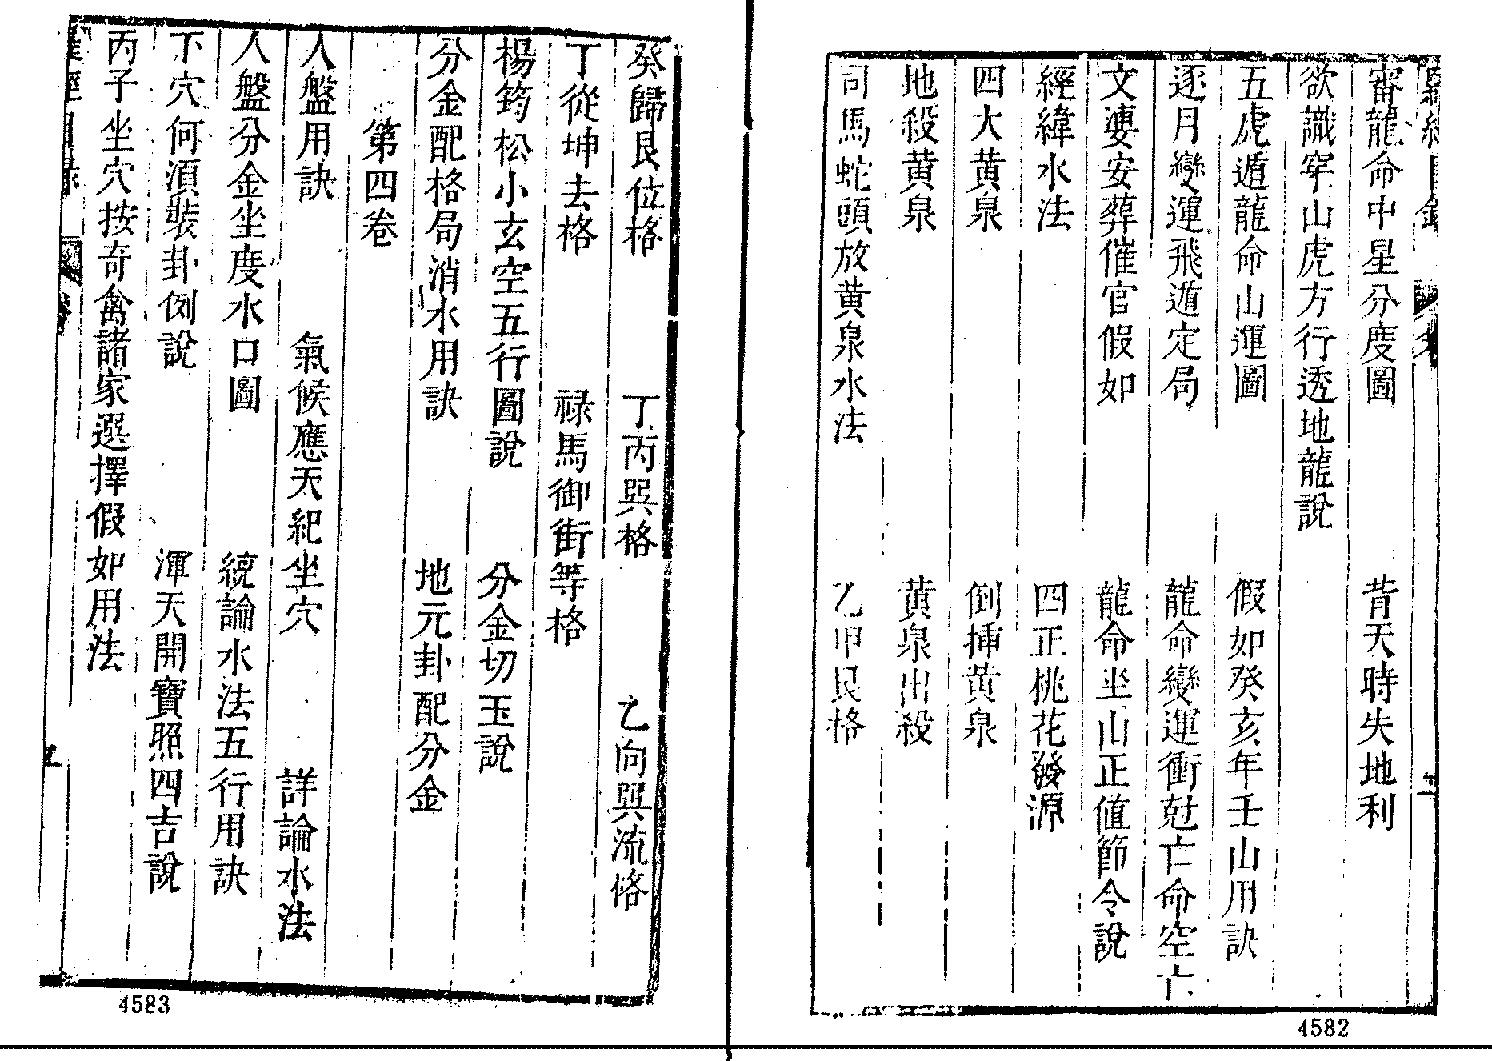 審龍命中星分度圖　背天時失地利
欲識穿山虎方行透地龍說
五虎遁龍命山運圖　假如癸亥年壬山用訣
逐月變運飛遁定局　龍命變運衝尅亡命空亡
文婆安葬催官假如　龍命坐山正值節令說
經緯水法　四正桃花發源
四大黃泉　倒挿黃泉
地殺黃泉　黃泉出殺
司馬蛇頭放黃泉水法　乙甲艮格
4582
癸歸艮位格　丁丙巽格　乙向巽流格
丁從坤去格　祿馬御街等格
楊筠松小玄空五行圖說　分金切玉說
分金配格局消水用訣　地元卦配分金
第四卷
人盤用訣　氣候應天紀坐穴　詳論水法
人盤分金坐度水口圖　統論水法五行用訣
下穴何須裝卦例說　渾天開寶照四吉說
丙子坐穴按奇禽諸家選擇假如用法
4583